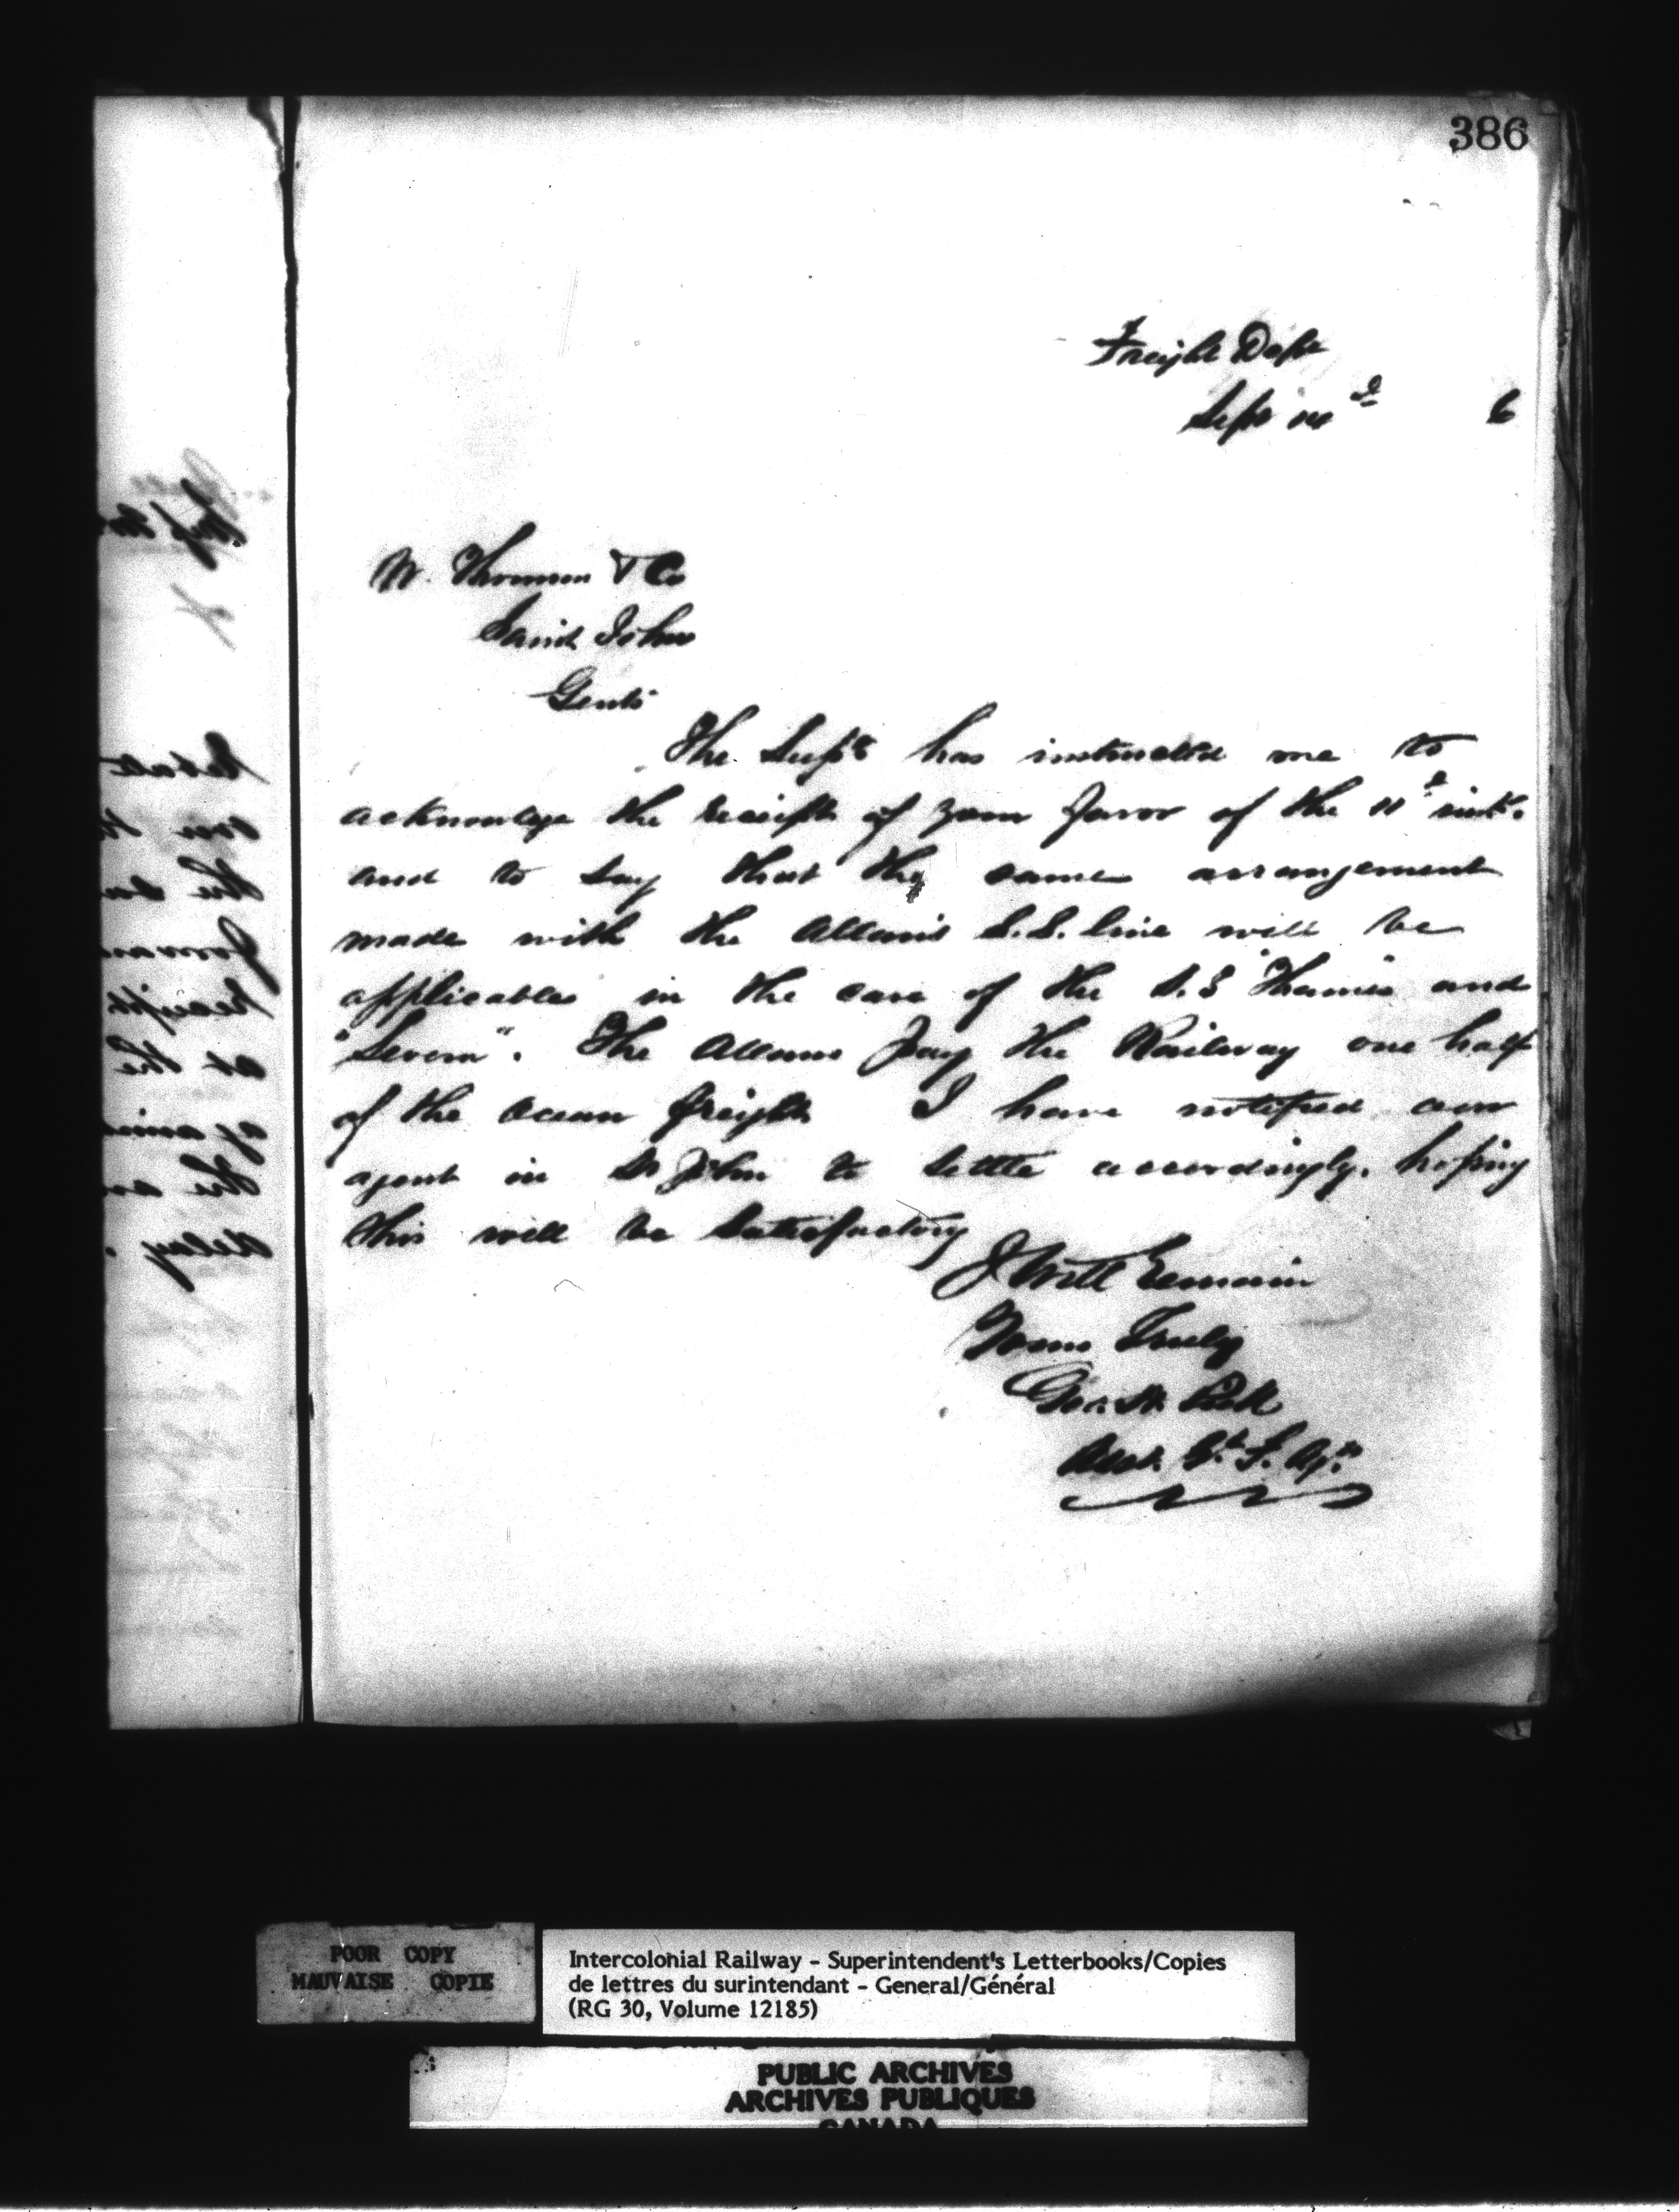 386
Freight Dept
Sept 14th 6
W. Thomson & Co
Saint John
Gents
The Supt has instructed me to
acknowlege the receipt of your favor of the 11th inst.
and to say that the same arrangement
made with the Allan's S.S. line will be
applicable in the case of the S.S "Thames" and
"Severn". The Allans pay the Railway one half
of the Ocean freight I have notified our
agent in St John to settle accordingly. hoping
this will be satisfactory
I will remain
Yours Truly
Geo. H.
Asst. G. F. Agt.
POOR COPY
MAUVAISE COPIE
Intercolonial Railway - Superintendent's Letterbooks/Copies
de lettres du surintendant - General/Général
(RG 30, Volume 12185)
PUBLIC ARCHIVES
ARCHIVES PUBLIQUES
CANADA